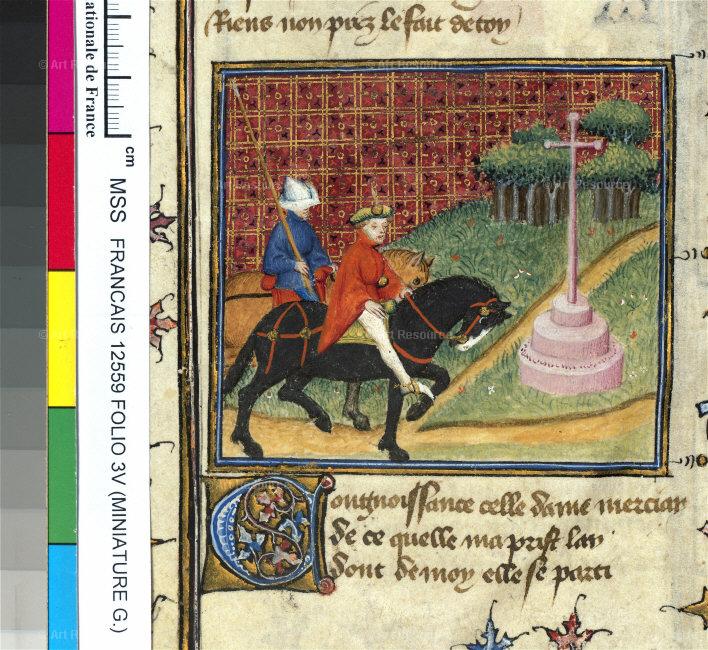 Riens non pirz le fait de toy
ationale de France
cm
MSS FRANCAIS 12559 FOLIO 3V (MINIATURE G.)
© Art Resource
ongnoissance celle dame merciay
de ce quelle ma prist lay
dont de moy elle se parti